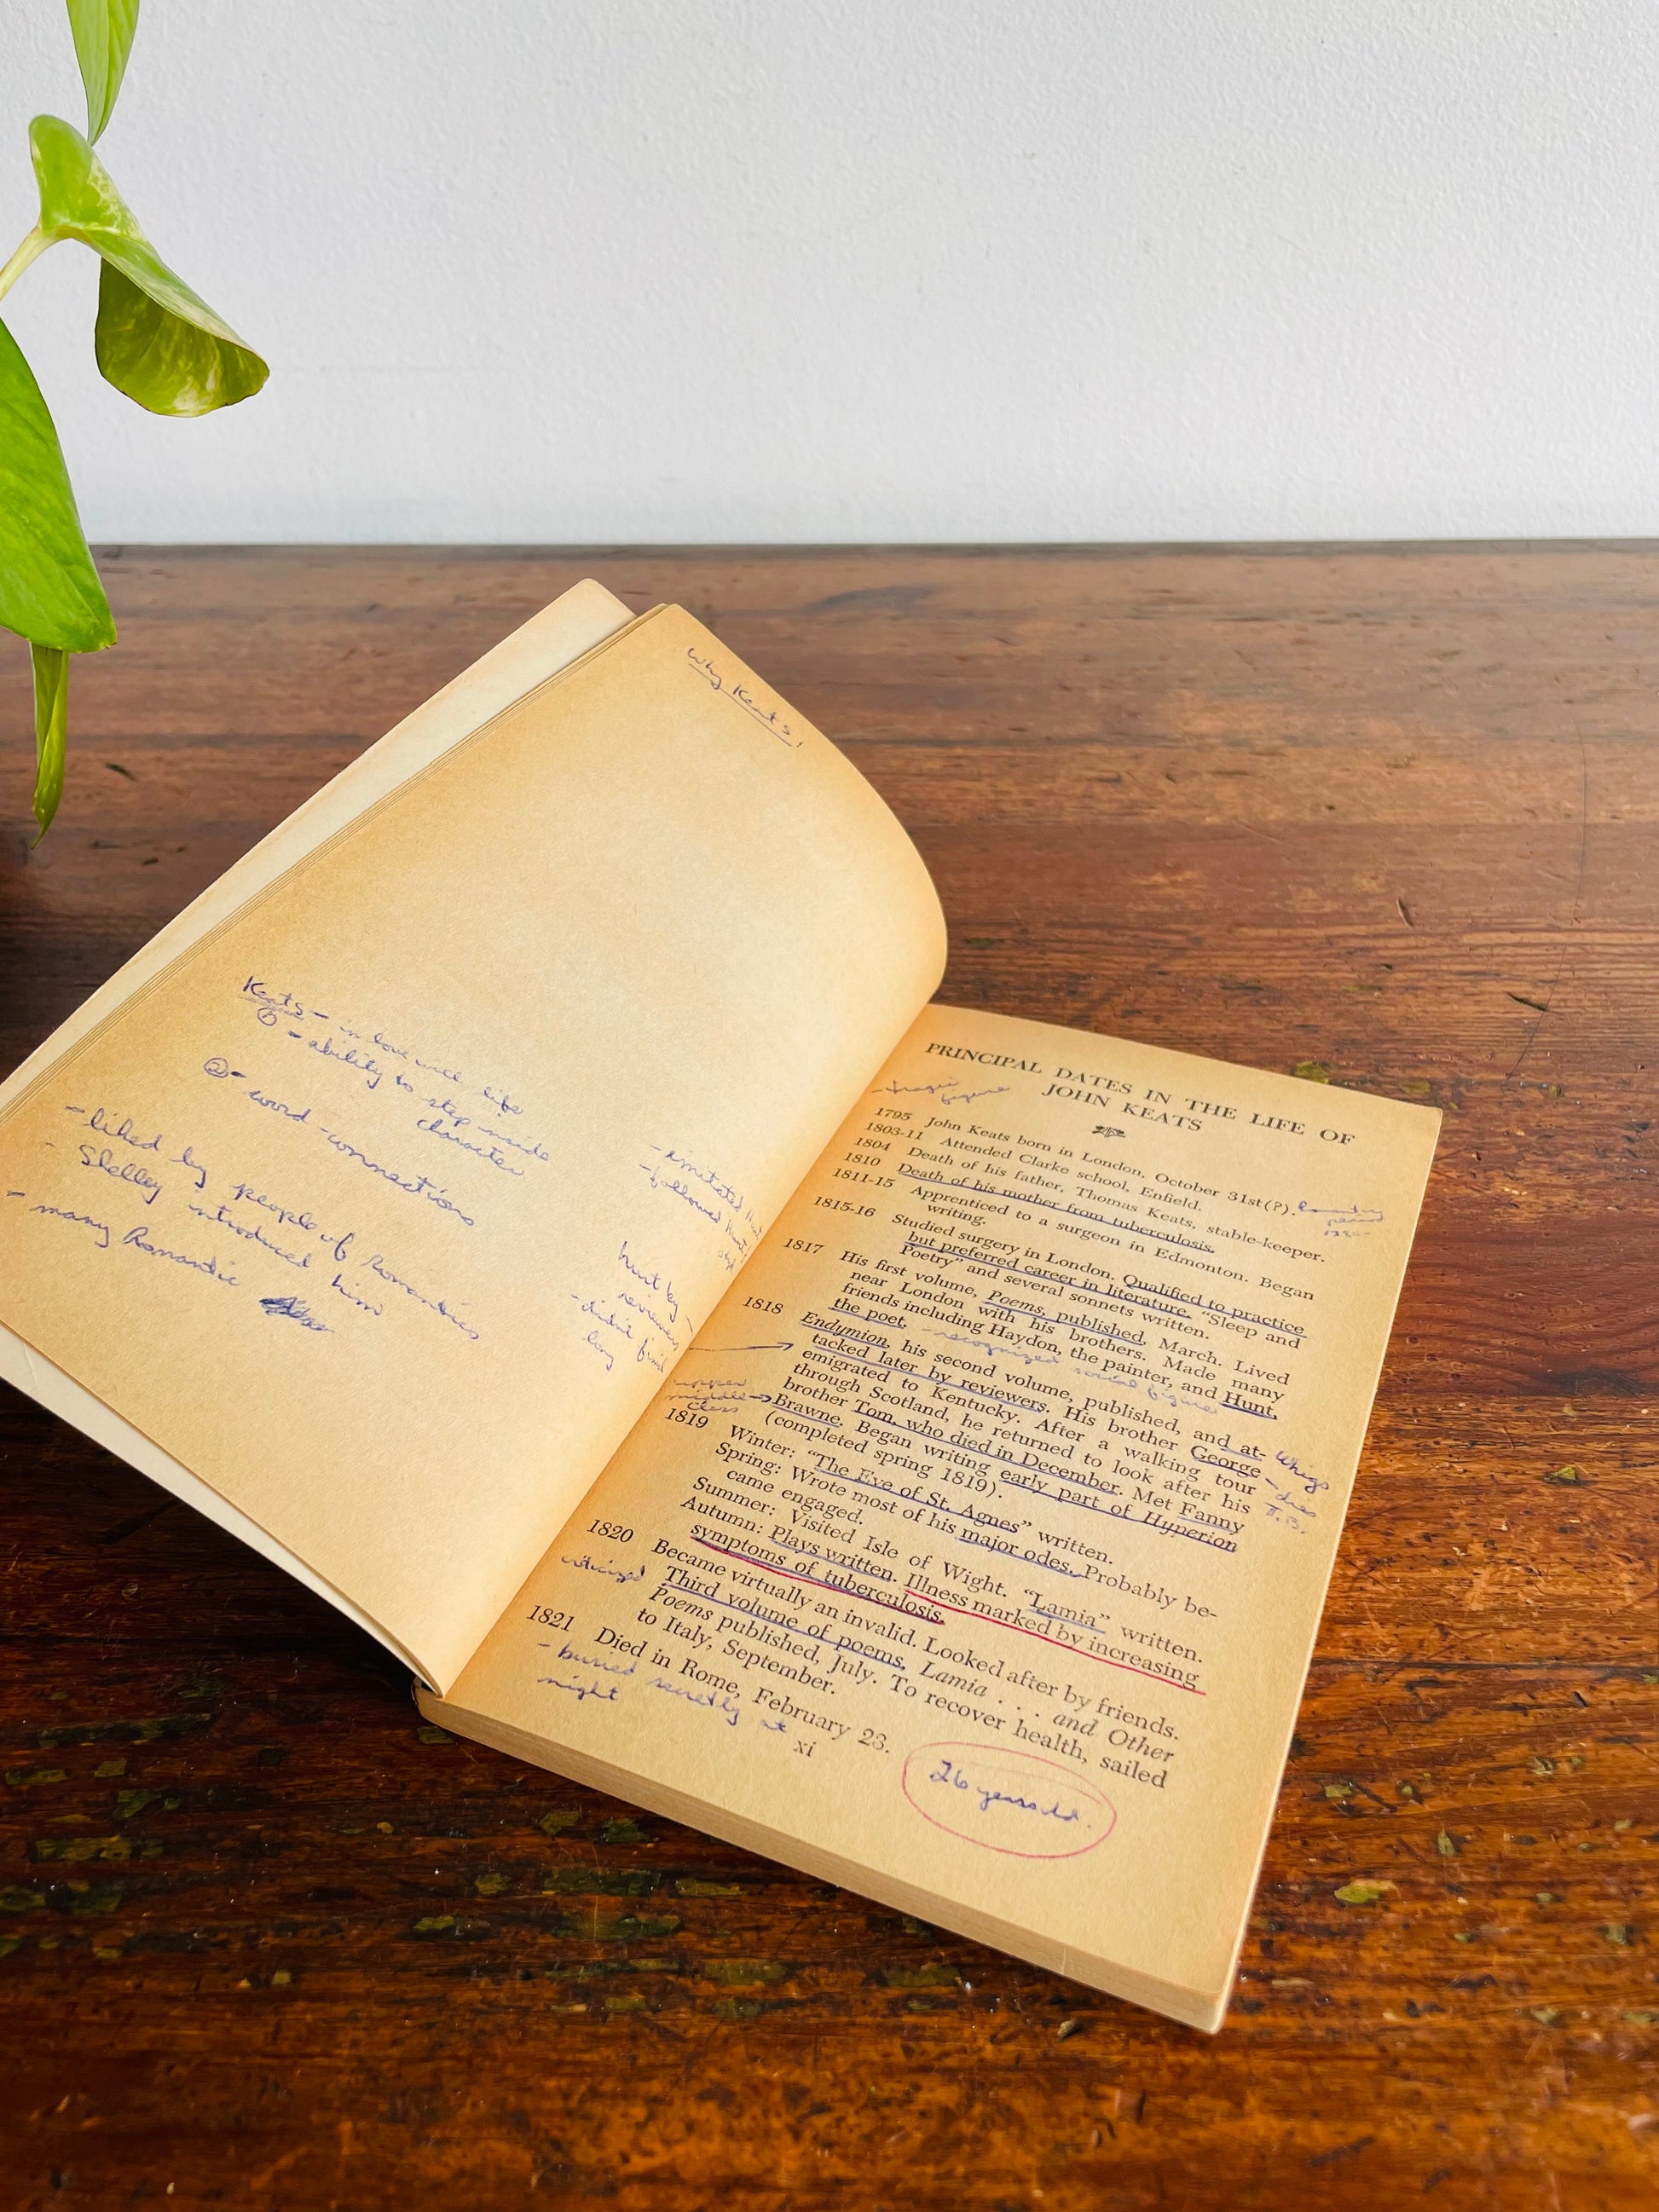 Why Keats!
Keats - in love with life
① - ability to step inside
character
② - word-connections
- liked by people of Romantics
- Shelley introduced him
- many Romantic
- imitated
- followed
hurt by
reviewers
- didn't
long
PRINCIPAL DATES IN THE LIFE OF
JOHN KEATS
- tragic
figure
1795 John Keats born in London, October 31st(?).
1803-11 Attended Clarke school, Enfield.
1804 Death of his father, Thomas Keats, stable-keeper.
1810 Death of his mother from tuberculosis.
1811-15 Apprenticed to a surgeon in Edmonton. Began
writing.
1815-16 Studied surgery in London. Qualified to practice
but preferred career in literature. "Sleep and
Poetry" and several sonnets written.
1817 His first volume, Poems, published, March. Lived
near London with his brothers. Made many
friends including Haydon, the painter, and Hunt,
the poet. - recognized social figure
1818 Endymion, his second volume, published, and at-
tacked later by reviewers. His brother George
emigrated to Kentucky. After a walking tour
through Scotland, he returned to look after his
brother Tom, who died in December. Met Fanny
Brawne. Began writing early part of Hyperion
(completed spring 1819).
Whigs
- dies
T.B.
upper
middle
class
1819 Winter: "The Eve of St. Agnes" written.
Spring: Wrote most of his major odes. Probably be-
came engaged.
Summer: Visited Isle of Wight. "Lamia" written.
Autumn: Plays written. Illness marked by increasing
symptoms of tuberculosis.
1820 Became virtually an invalid. Looked after by friends.
criticized Third volume of poems, Lamia . . . and Other
Poems published, July. To recover health, sailed
to Italy, September.
1821 Died in Rome, February 23.
- buried secretly at
night
xi
26 years old.